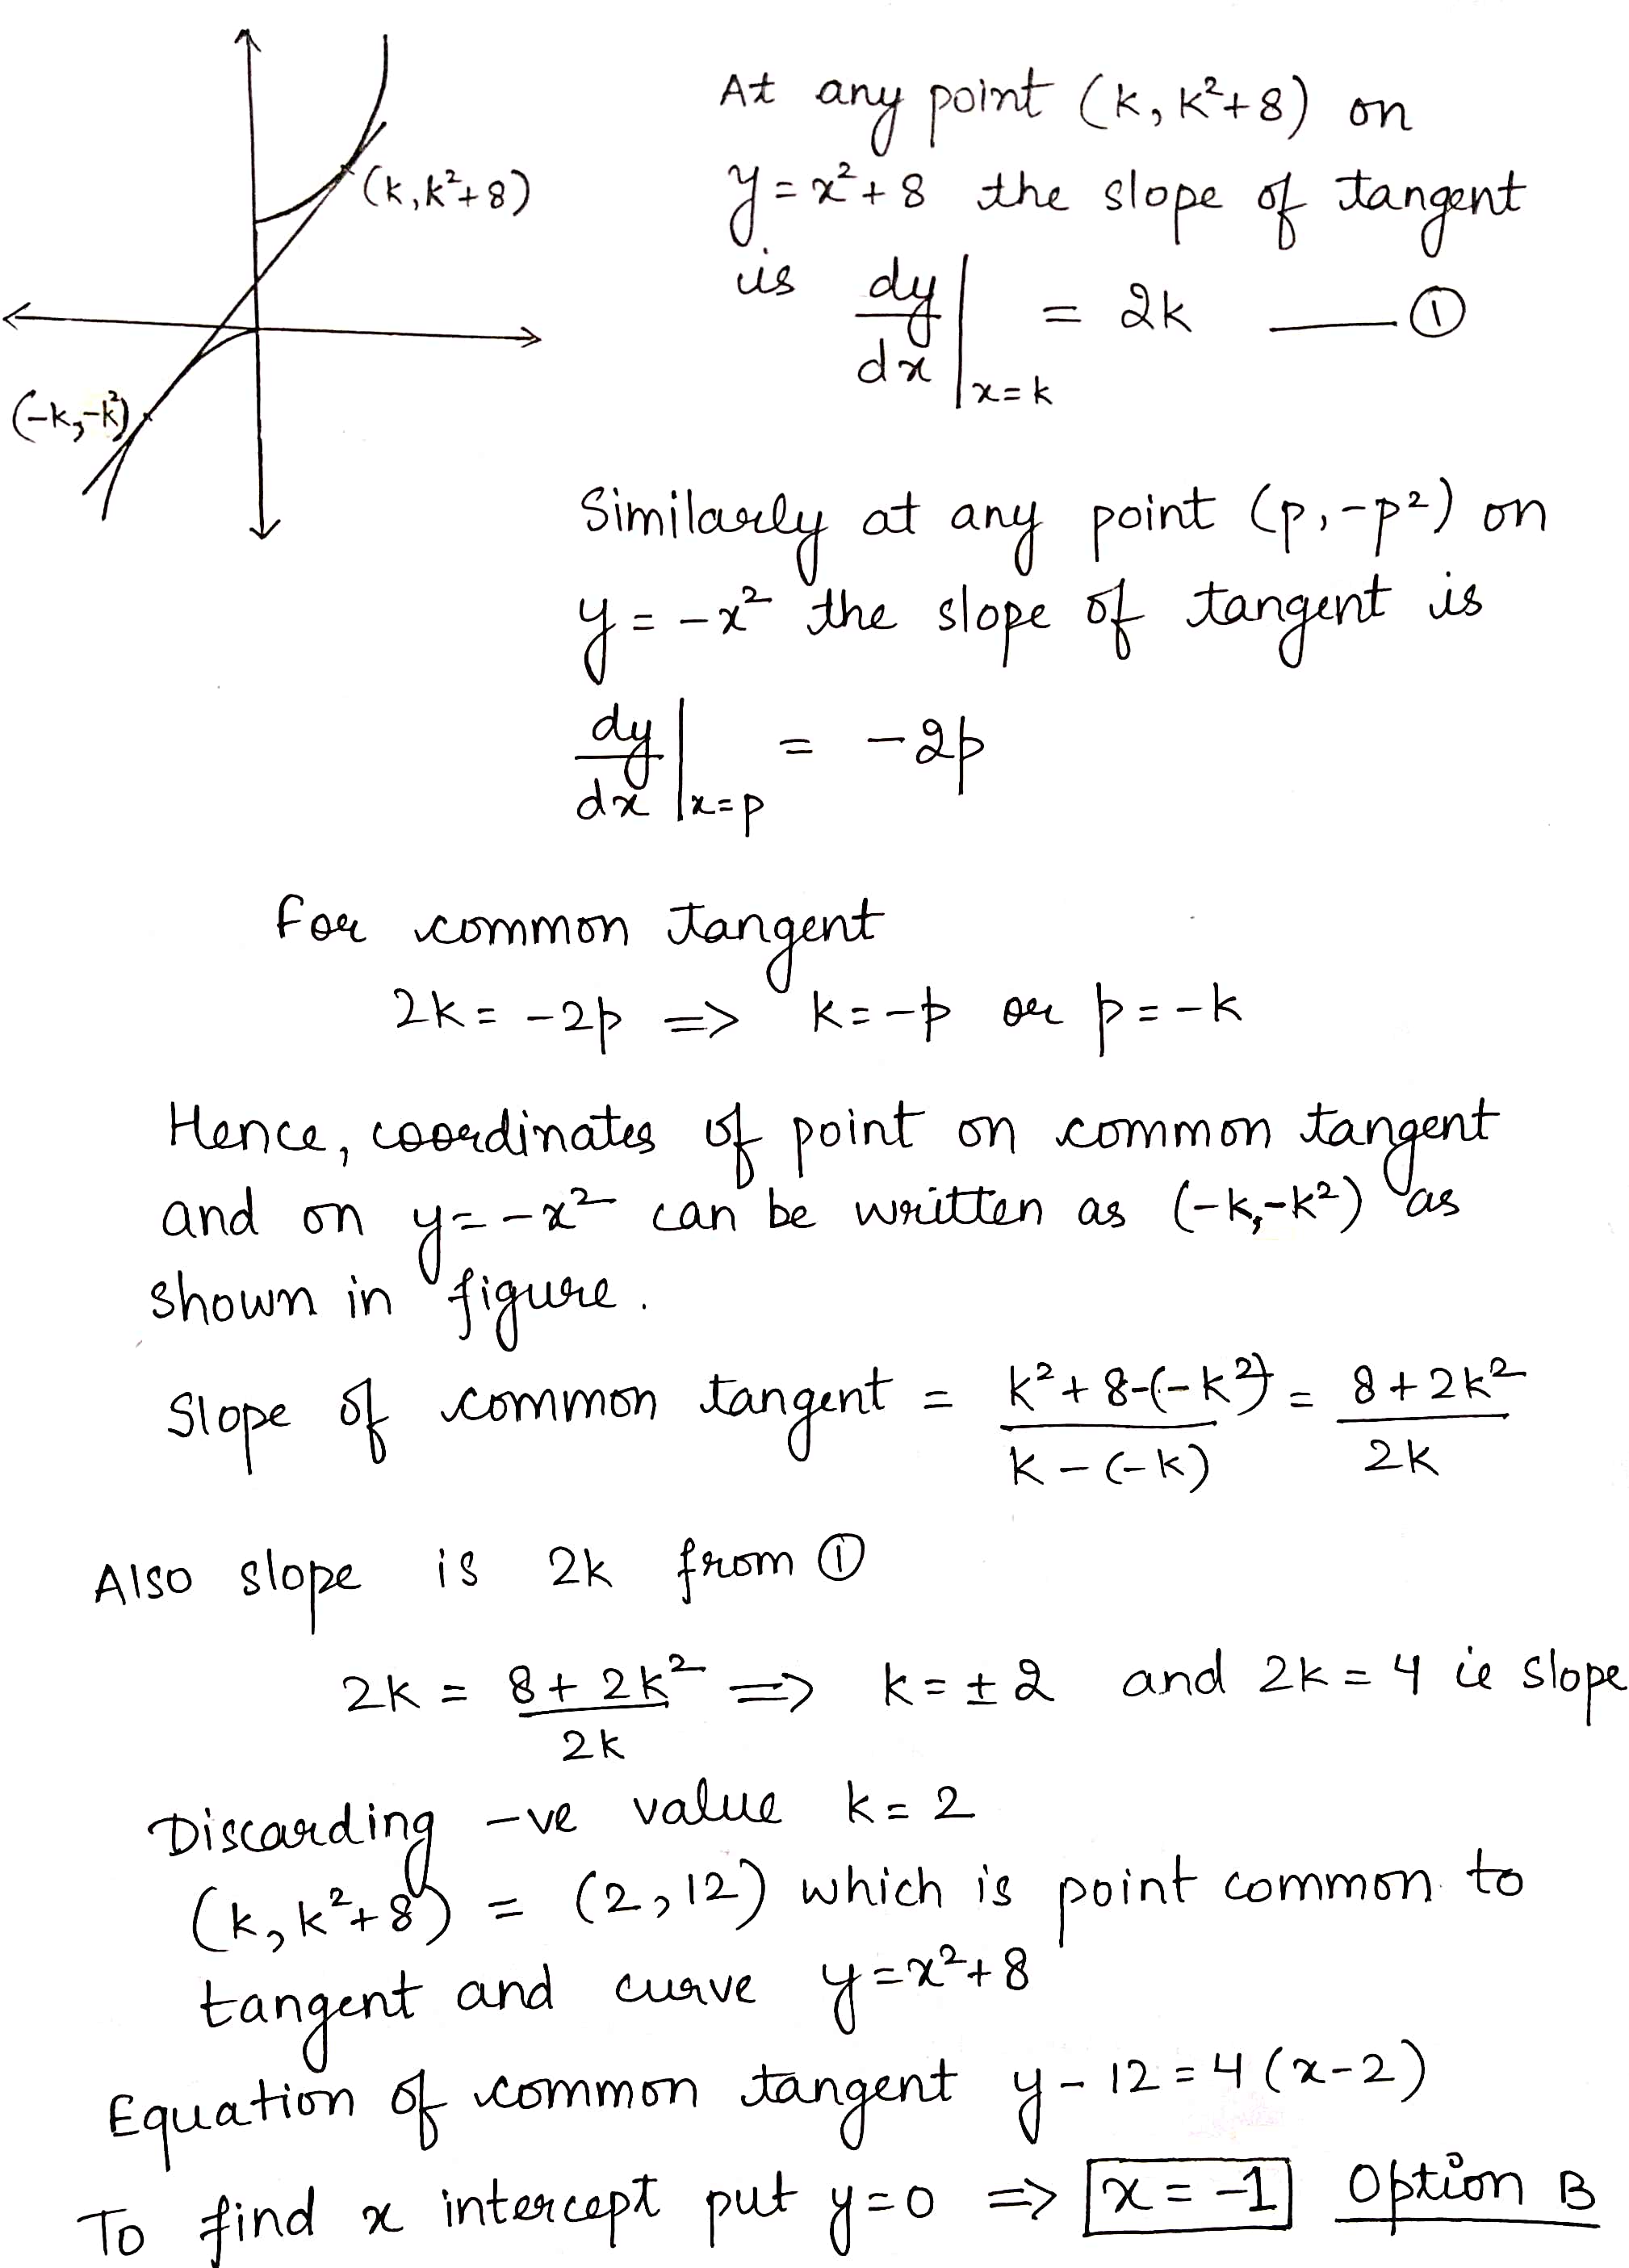 (k, k²+8)
(-k, -k²)
At any point (k, k²+8) on
y = x²+8 the slope of tangent
is dy/dx |x=k = 2k —— ①
Similarly at any point (p, -p²) on
y = -x² the slope of tangent is
dy/dx |x=p = -2p
For common tangent
2k = -2p => k = -p or p = -k
Hence, coordinates of point on common tangent
and on y = -x² can be written as (-k, -k²) as
shown in figure.
Slope of common tangent = (k²+8-(-k²))/(k-(-k)) = (8+2k²)/2k
Also slope is 2k from ①
2k = (8+2k²)/2k => k = ±2 and 2k = 4 ie slope
Discarding -ve value k = 2
(k, k²+8) = (2, 12) which is point common to
tangent and curve y = x²+8
Equation of common tangent y - 12 = 4(x-2)
To find x intercept put y=0 => x = -1 Option B